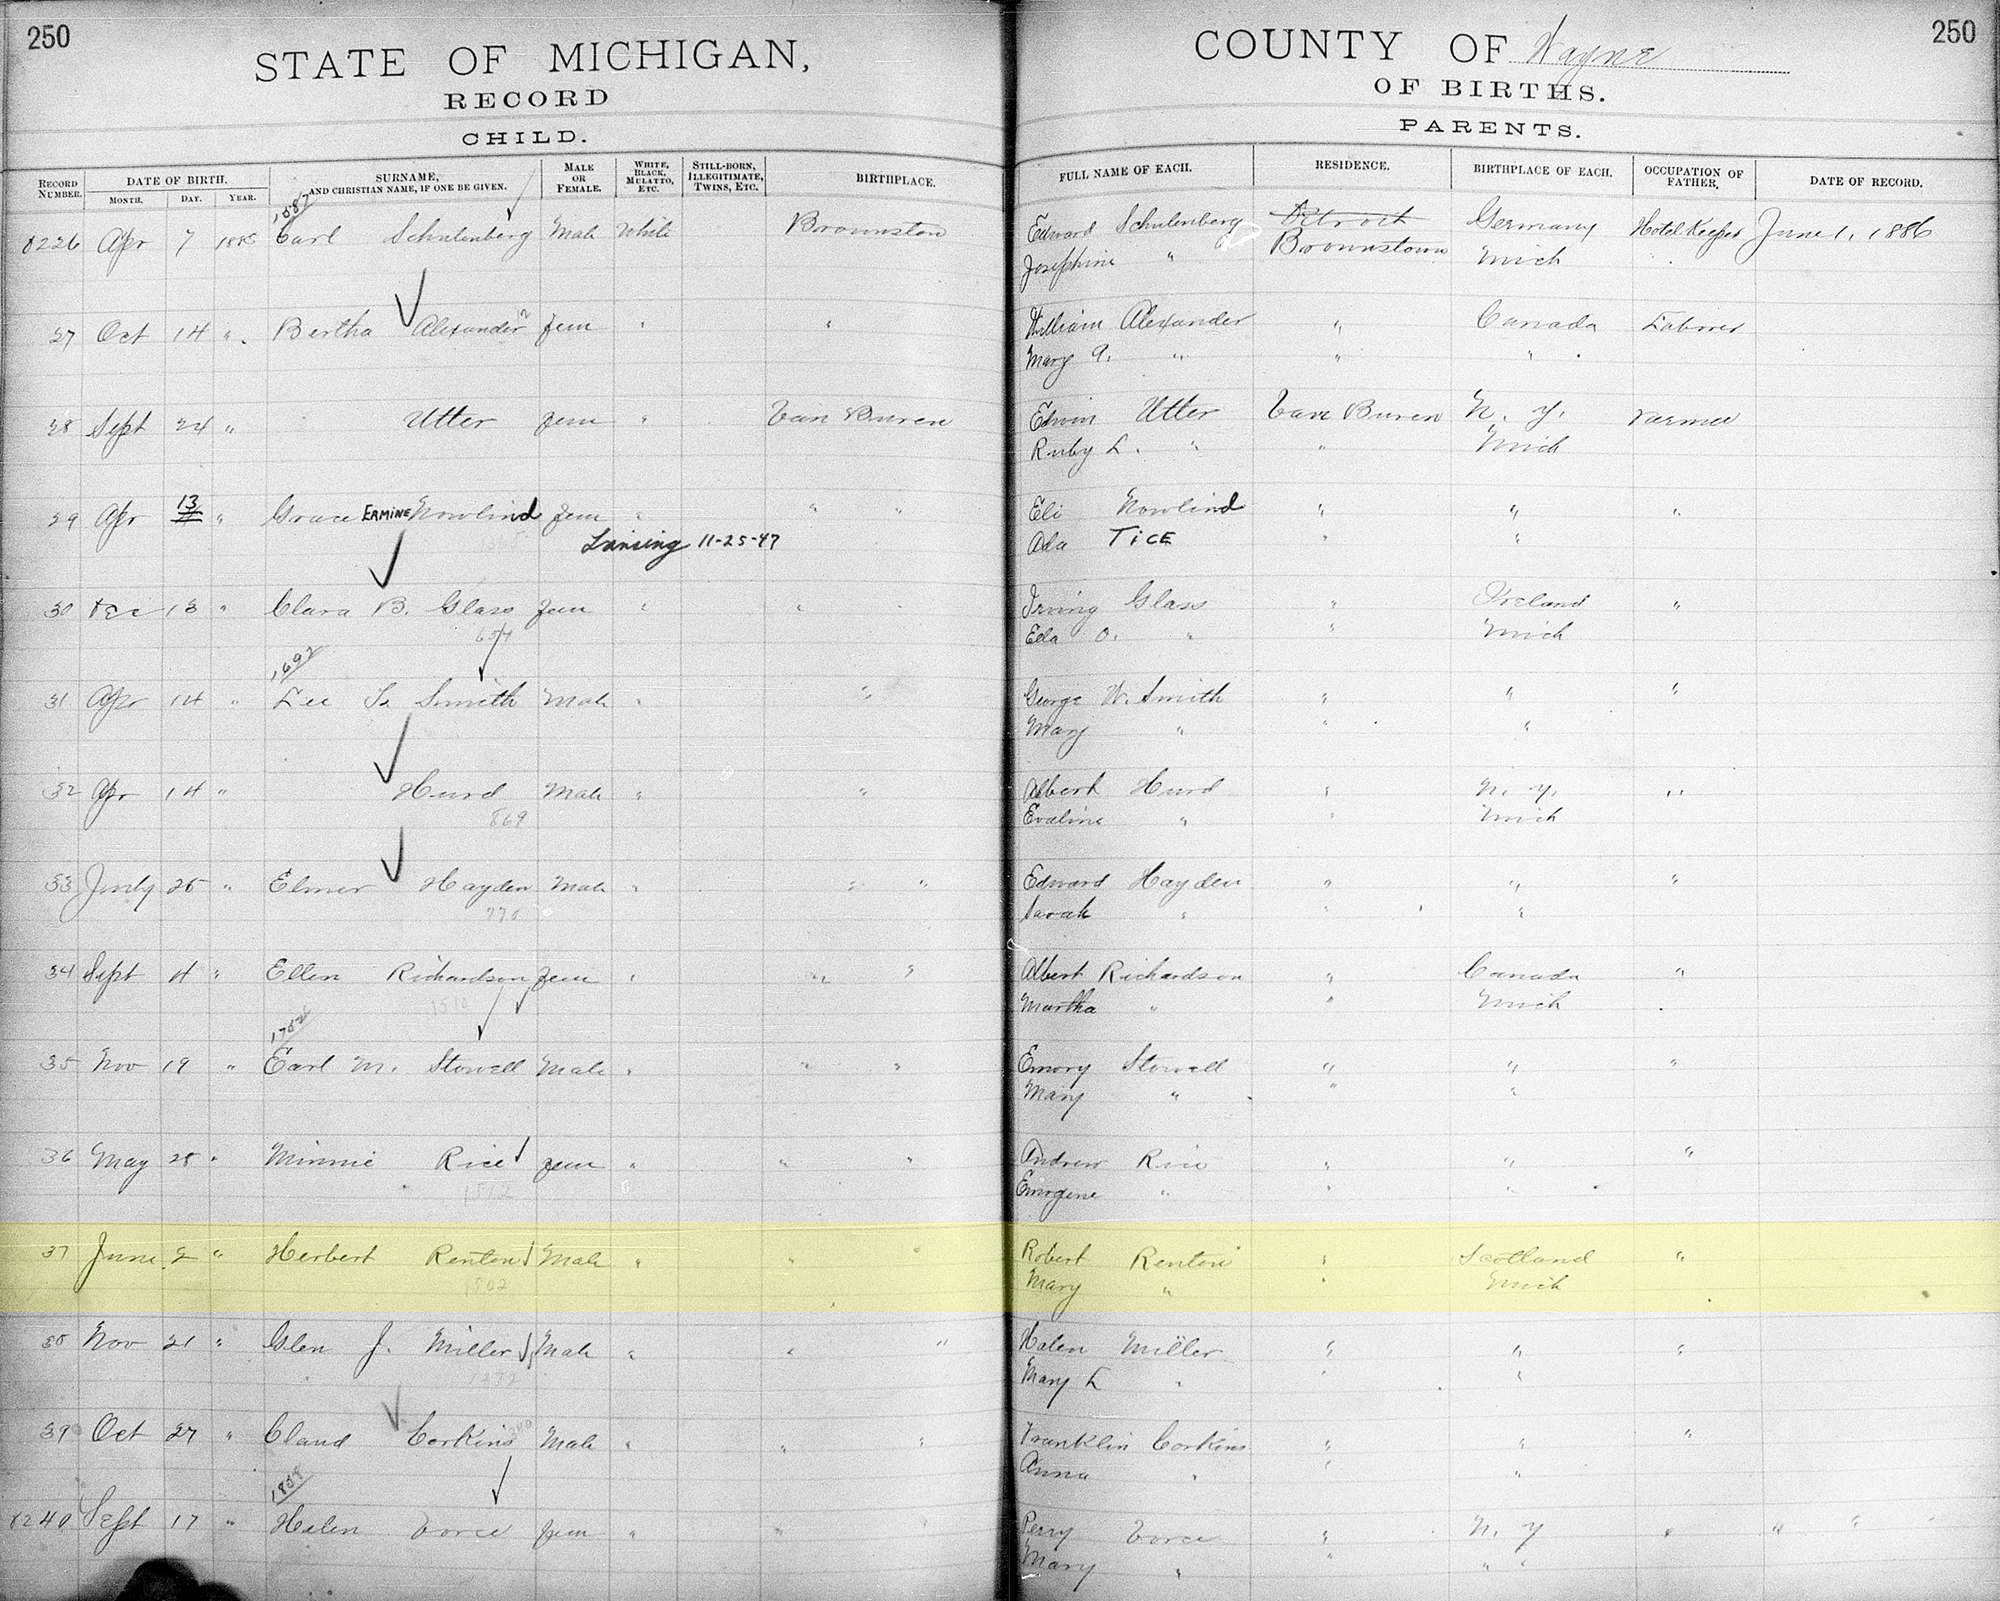 250
STATE OF MICHIGAN,
RECORD
CHILD.
COUNTY OF Wayne
250
OF BIRTHS.
PARENTS.
RECORD NUMBER.
DATE OF BIRTH.
MONTH. DAY. YEAR.
SURNAME,
AND CHRISTIAN NAME, IF ONE BE GIVEN.
MALE OR FEMALE.
WHITE, BLACK, MULATTO, ETC.
STILL-BORN, ILLEGITIMATE, TWINS, ETC.
BIRTHPLACE.
FULL NAME OF EACH.
RESIDENCE.
BIRTHPLACE OF EACH.
OCCUPATION OF FATHER.
DATE OF RECORD.
1587
8226 Apr 7 1885 Carl Schulenberg Male White Brownstown Edward Schulenberg Detroit Germany Hotel Keeper June 1, 1886
Josephine " Brownstown Mich
27 Oct 14 " Bertha Alexander Fem " " William Alexander " Canada Laborer
Mary A. " " "
28 Sept 24 " Utter Fem " Van Buren Edwin Utter Van Buren N. Y. Farmer
Ruby L. " " Mich
29 Apr 13 " Grace ERMINE Nowlind Fem " " " Eli Nowlind " " "
Lansing 11-25-47 Ada TICE " "
30 Dec 13 " Clara B. Glass Fem " " " Irving Glass " Ireland "
654 Eda O. " " Mich
1692
31 Apr 14 " Lee Smith Male " " George W. Smith " " "
Mary " " "
32 Apr 14 " Hurd Male " " Albert Hurd " N. Y. "
869 Evaline " " Mich
33 July 25 " Elmer Hayden Male " " " Edward Hayden " " "
770 Sarah " " "
34 Sept 4 " Ellen Richardson Fem " " " Albert Richardson " Canada "
1510 Martha " " Mich
35 Nov 19 " Earl M. Stowell Male " " " Emory Stowell " " "
Mary " " "
36 May 28 " Minnie Rice Fem " " " Andrew Rice " " "
1512 Emogene " " "
37 June 2 " Herbert Renton Male " " " Robert Renton " Scotland "
1502 Mary " " Mich
38 Nov 21 " Glen J. Miller Male " " " Halen Miller " " "
Mary L " " "
39 Oct 27 " Claud Corkins Male " " " Franklin Corkins " " "
Anna " " "
1858
8240 Sept 17 " Helen Vorce Fem " " " Perry Vorce " N. Y " " " "
Mary " " " "